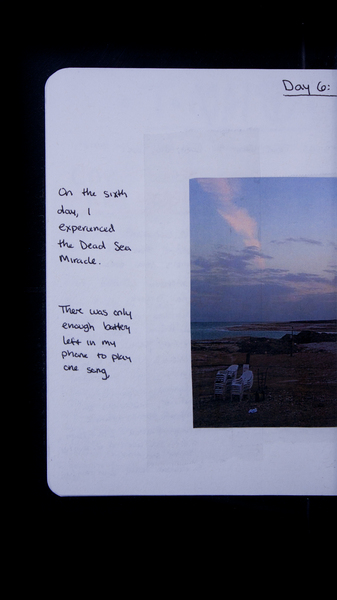 Day 6:
On the sixth
day, I
experienced
the Dead Sea
Miracle.
There was only
enough battery
left in my
phone to play
one song,